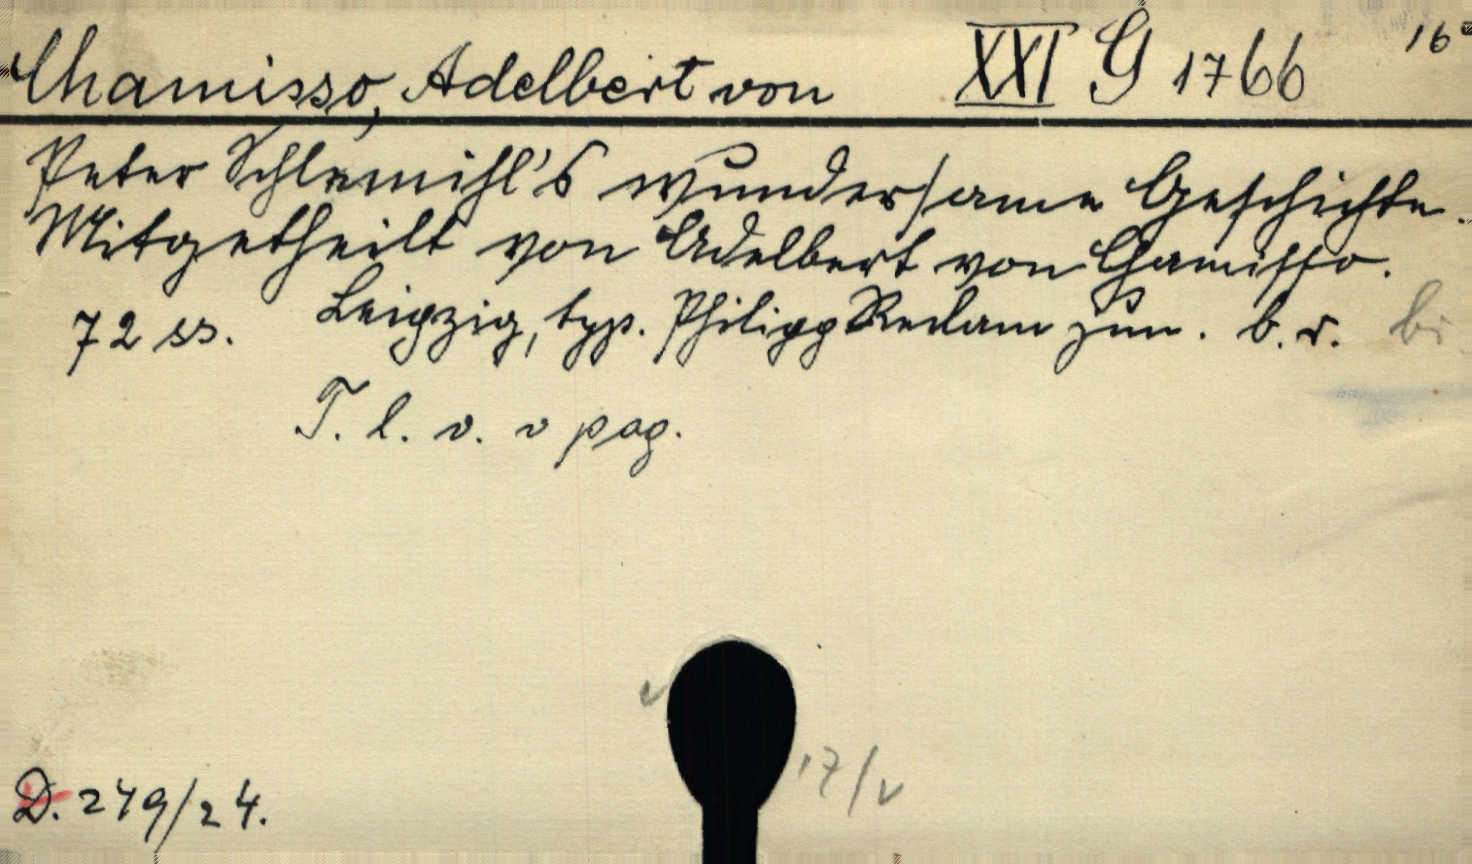 Chamisso, Adelbert von XXI G 1766 16°
Peter Schlemihl's wundersame Geschichte.
Mitgetheilt von Adelbert von Chamisso.
72 ss. Leipzig, typ. Philipp Reclam jun. b. r. bi
T. l. v. v pag.
17/V
D. 249/24.